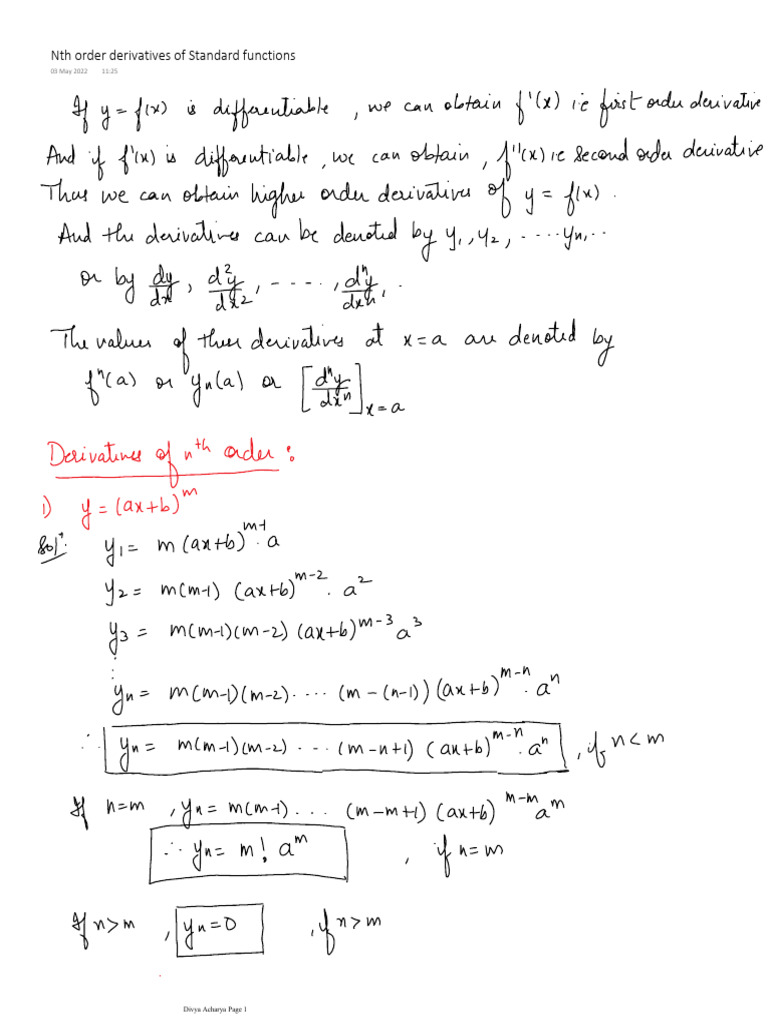 Nth order derivatives of Standard functions
03 May 2022 11:25
If y = f(x) is differentiable, we can obtain f'(x) ie first order derivative
And if f'(x) is differentiable, we can obtain, f''(x) ie second order derivative
Thus we can obtain higher order derivatives of y = f(x).
And the derivatives can be denoted by y₁, y₂, ..... yₙ, ..
or by dy/dx, d²y/dx², - - - -, dⁿy/dxⁿ.
The values of these derivatives at x=a are denoted by
fⁿ(a) or yₙ(a) or [dⁿy/dxⁿ]ₓ₌ₐ
Derivatives of nᵗʰ order :
1) y = (ax+b)^m
Solⁿ: y₁ = m(ax+b)^(m-1) . a
y₂ = m(m-1) (ax+b)^(m-2) . a²
y₃ = m(m-1)(m-2) (ax+b)^(m-3) a³
⋮
yₙ = m(m-1)(m-2). .... (m-(n-1)) (ax+b)^(m-n) . aⁿ
∴ yₙ = m(m-1)(m-2) . ... (m-n+1) (ax+b)^(m-n) . aⁿ , if n<m
If n=m , yₙ = m(m-1) . .. (m-m+1) (ax+b)^(m-m) a^m
∴ yₙ = m! a^m , if n=m
If n>m , yₙ=0 , if n>m
Divya Acharya Page 1